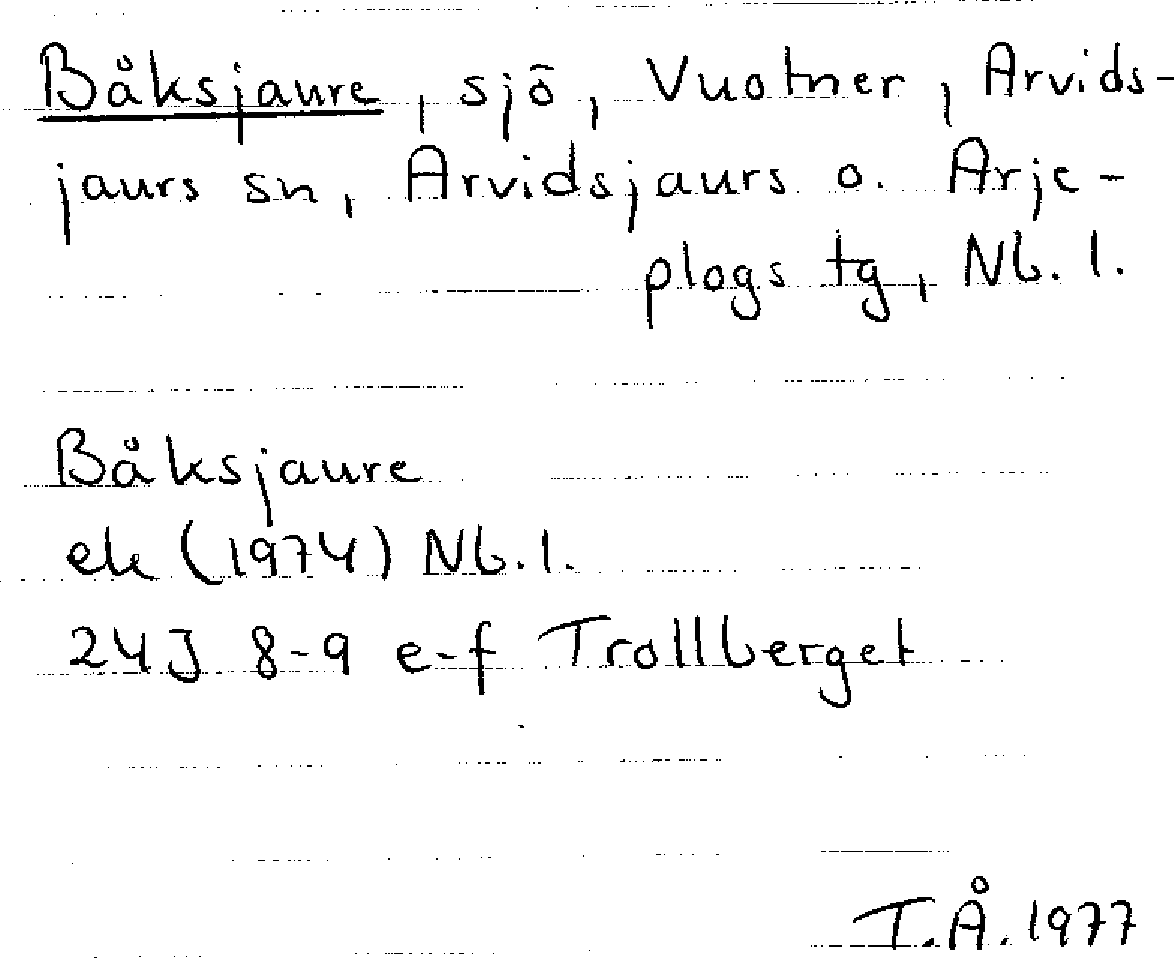 Båksjaure, sjö, Vuotner, Arvids-
jaurs sn, Arvidsjaurs o. Arje-
plogs tg, Nb. l.
Båksjaure
ek (1974) Nb. l.
24J 8-9 e-f Trollberget
T.Å. 1977